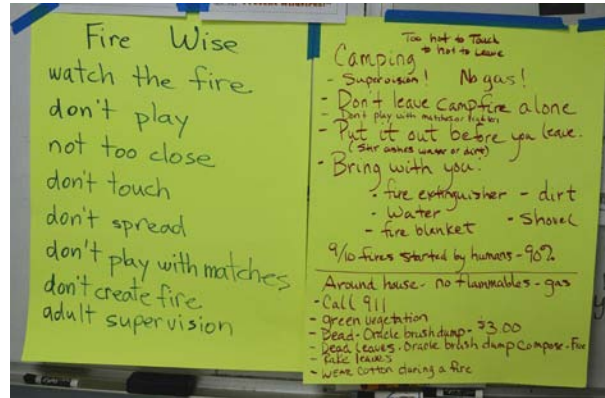 Fire Wise
watch the fire
don't play
not too close
don't touch
don't spread
don't play with matches
don't create fire
adult supervision
Too hot to Touch
to hot to Leave
Camping
- Supervision! No gas!
- Don't leave campfire alone
- Don't play with matches or
- Put it out before you leave.
(Stir ashes water or dirt)
- Bring with you:
- fire extinguisher - dirt
- Water - shovel
- fire blanket
9/10 fires started by humans - 90%
Around house - no flammables - gas
- Call 911
- green vegetation
- Dead - Oracle brush dump - $3.00
- Dead leaves - Oracle brush dump compose -
- rake leaves
- wear cotton during a fire